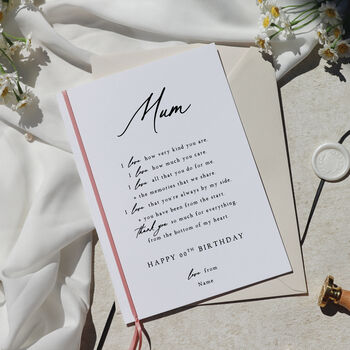 Mum
I love how very kind you are.
I love how much you care.
I love all that you do for me.
+ the memories that we share.
I love that you're always by my side.
+ you have been from the start.
Thank you so much for everything.
from the bottom of my heart.
HAPPY 00TH BIRTHDAY
love from
Name